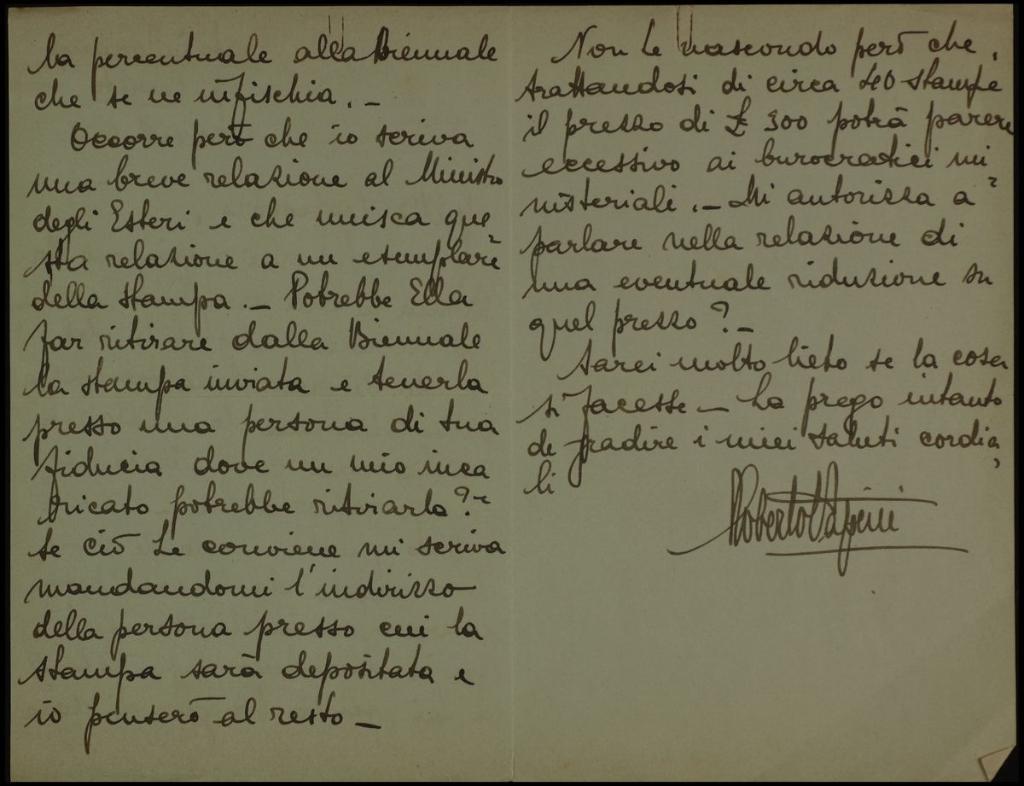 la percentuale alla Biennale
che se ne infischia. –
Occorre però che io scriva
una breve relazione al Ministro
degli Esteri e che unisca que
sta relazione a un esemplare
della stampa. – Potrebbe Ella
far ritirare dalla Biennale
la stampa inviata e tenerla
presso una persona di sua
fiducia dove un mio inca
ricato potrebbe ritirarla? –
Se ciò Le conviene mi scriva
mandandomi l'indirizzo
della persona presso cui la
stampa sarà depositata e
io penserò al resto –
Non Le nascondo però che,
trattandosi di circa 40 stampe
il prezzo di £ 300 potrà parere
eccessivo ai burocratici mi
nisteriali. – Mi autorizza a
parlare nella relazione di
una eventuale riduzione su
quel prezzo? –
Sarei molto lieto se la cosa
si facesse – La prego intanto
di gradire i miei saluti cordia
li
Roberto Papini